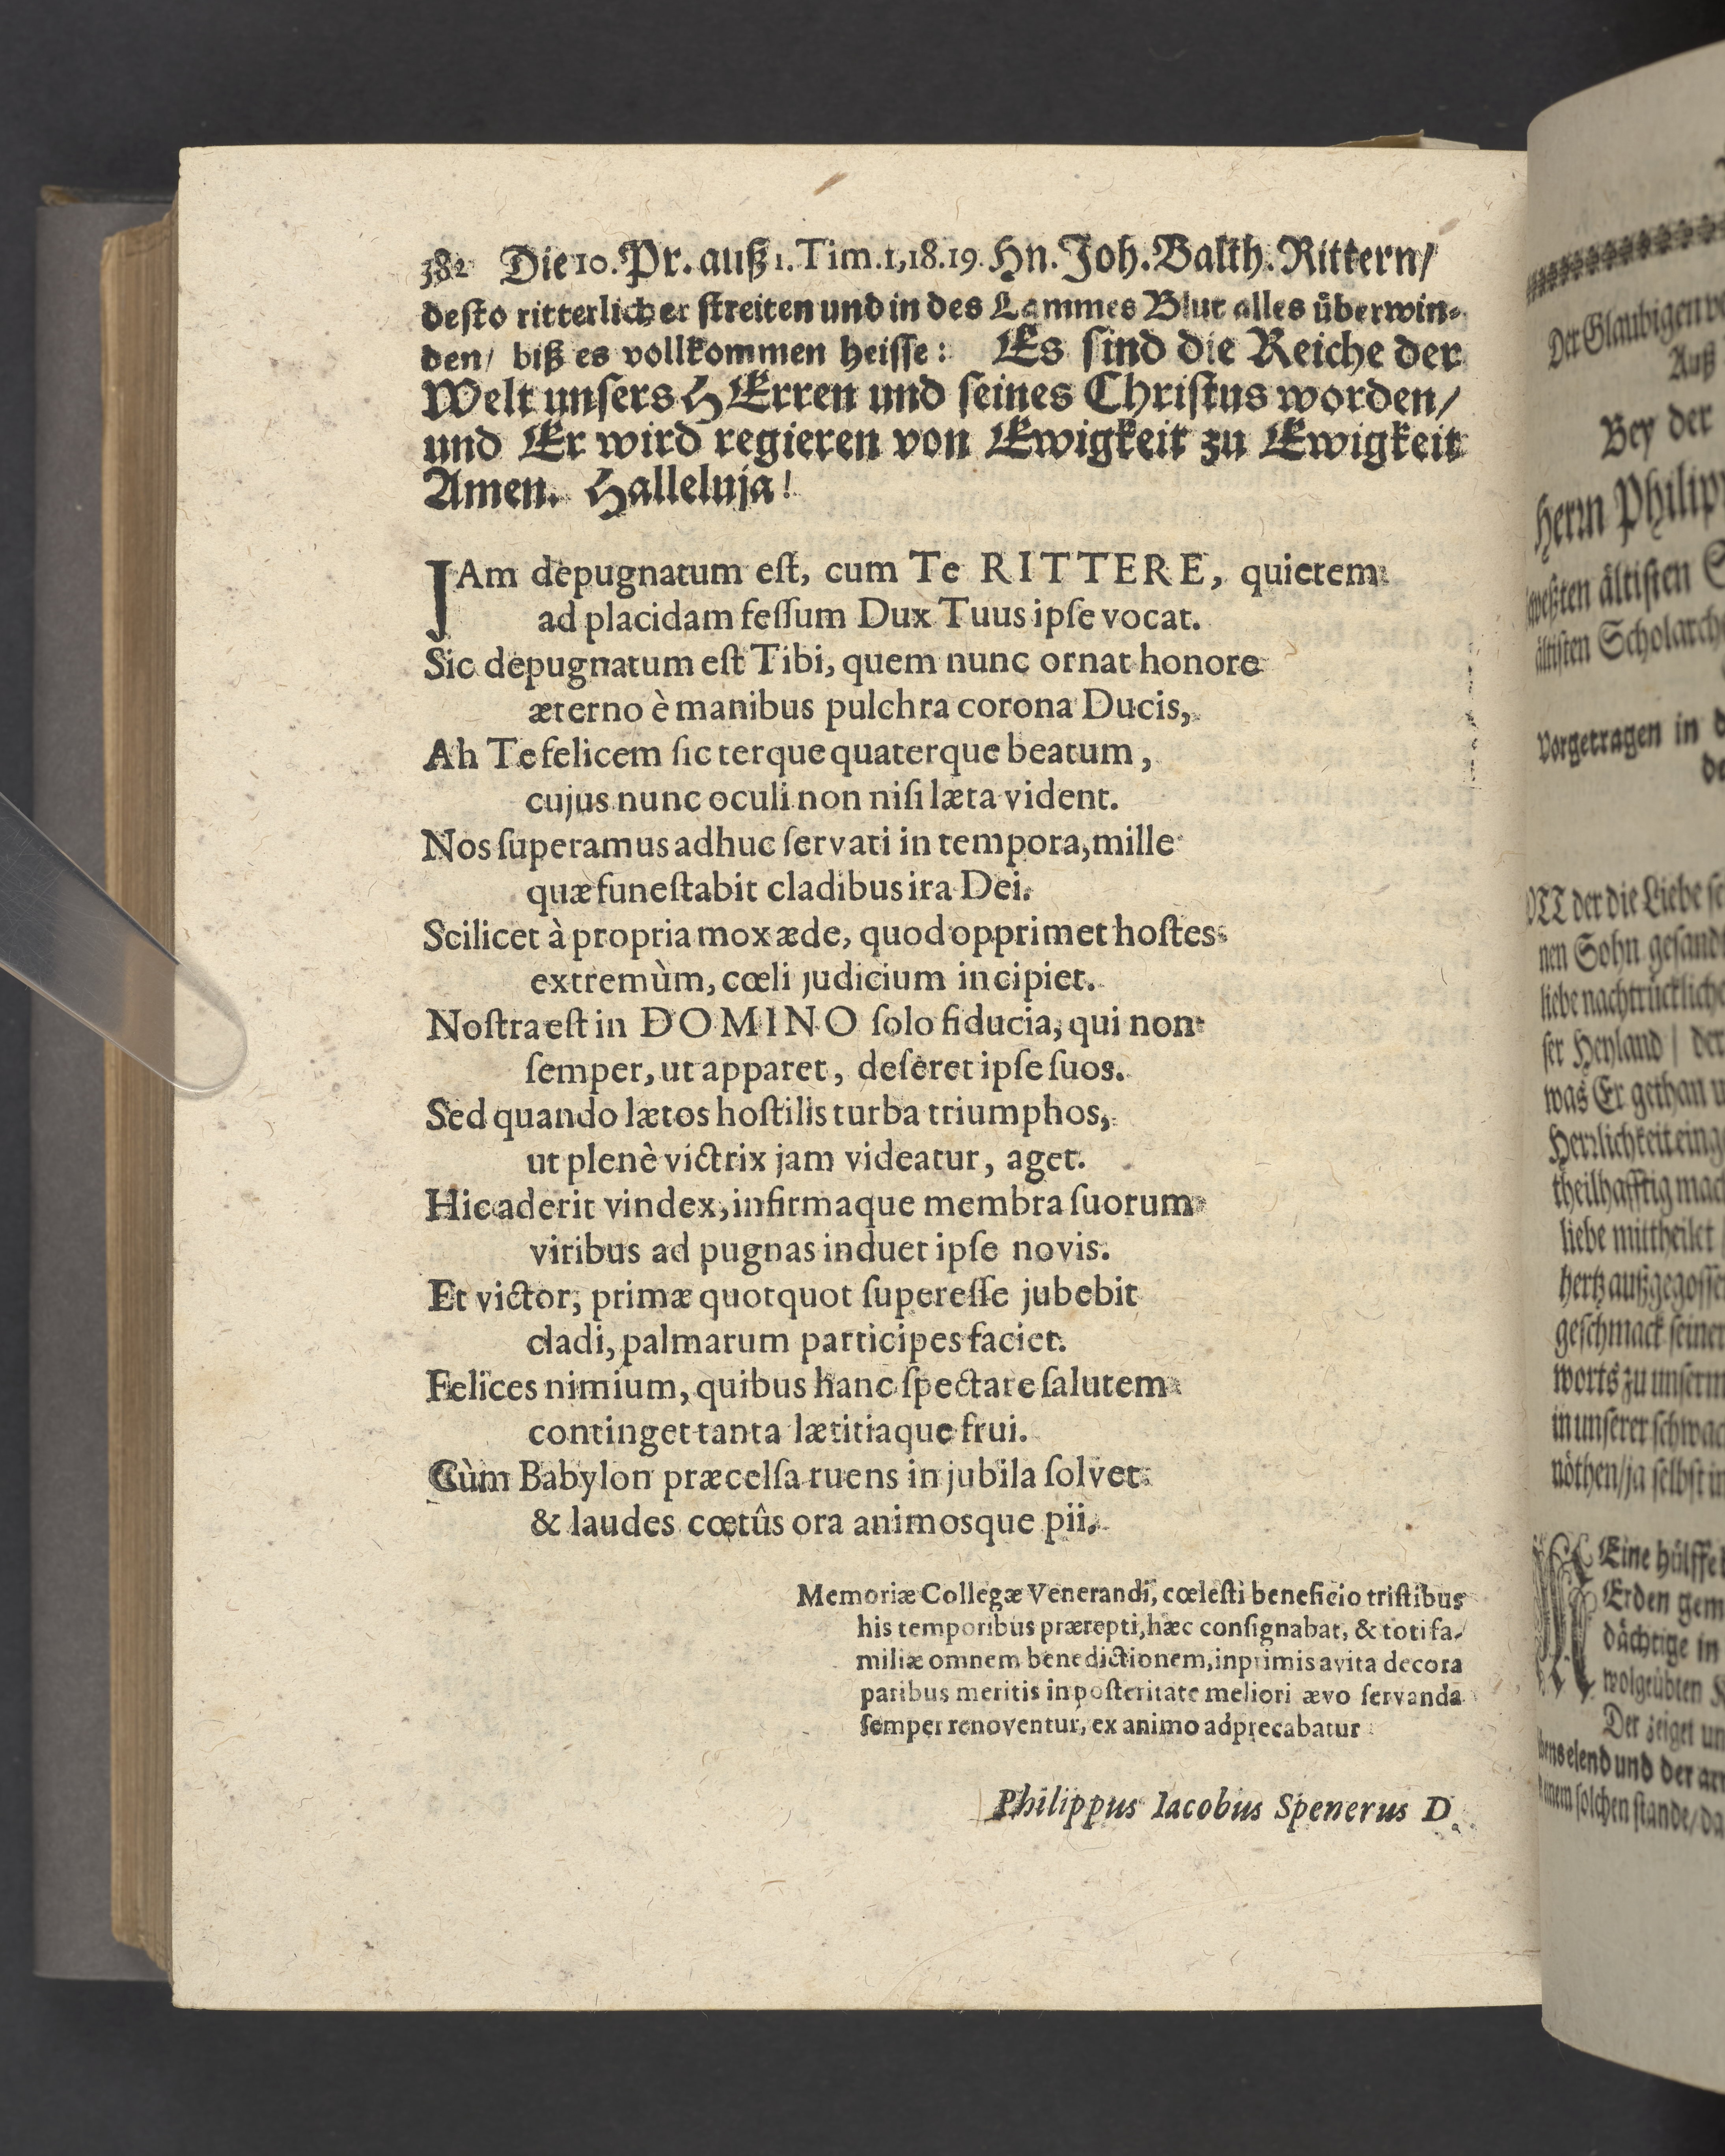 382 Die 10. Pr. auß 1. Tim. 1, 18. 19. Hn. Joh. Balth. Rittern/
desto ritterlicher streiten und in des Lammes Blut alles überwin-
den/ biß es vollkommen heisse: Es sind die Reiche der
Welt unsers HErren und seines Christus worden/
und Er wird regieren von Ewigkeit zu Ewigkeit
Amen. Halleluja!
JAm depugnatum est, cum Te RITTERE, quietem
ad placidam fessum Dux Tuus ipse vocat.
Sic depugnatum est Tibi, quem nunc ornat honore
æterno è manibus pulchra corona Ducis,
Ah Te felicem sic terque quaterque beatum,
cujus nunc oculi non nisi læta vident.
Nos superamus adhuc servati in tempora, mille
quæ funestabit cladibus ira Dei.
Scilicet à propria mox æde, quod opprimet hostes
extremùm, cœli judicium incipiet.
Nostra est in DOMINO solo fiducia, qui non
semper, ut apparet, deseret ipse suos.
Sed quando lætos hostilis turba triumphos,
ut plenè victrix jam videatur, aget.
Hic aderit vindex, infirmaque membra suorum
viribus ad pugnas induet ipse novis.
Et victor, primæ quotquot superesse jubebit
cladi, palmarum participes faciet.
Felices nimium, quibus hanc spectare salutem
continget tanta lætitiaque frui.
Cùm Babylon præcelsa ruens in jubila solvet
& laudes cœtûs ora animosque pii.
Memoriæ Collegæ Venerandi, cœlesti beneficio tristibus
his temporibus prærepti, hæc consignabat, & toti fa-
miliæ omnem benedictionem, inprimis avita decora
paribus meritis in posteritate meliori ævo servanda
semper renoventur, ex animo adprecabatur
Philippus Iacobus Spenerus D.
Der Glaubigen
Auß
Bey der
Herrn Philip
ältisten
ältisten Scholarch
Vorgetragen in
der die Liebe
nen Sohn gesand
liebe nachtrücklich
ser Heyland / der
was Er gethan
Herrlichkeit
theilhafftig
liebe mittheilet
hertz außgegosse
geschmack seiner
worts zu unserm
in unserer schwac
nöthen/ ja selbst in
Eine hülffe
Erden gem
dächtige in
wolgeübten
Der zeiget un
elend und der
solchen stande/ da